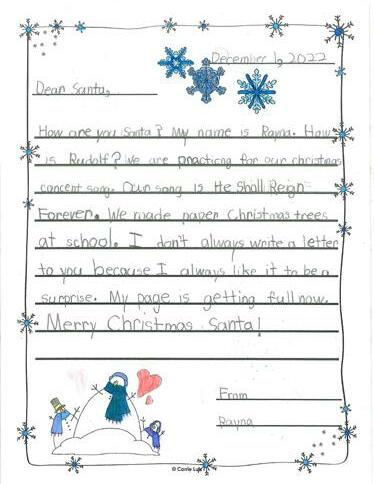 December 1, 2022
Dear Santa,
How are you Santa? My name is Rayna. How
is Rudolf? We are practicing for our christmas
concert song. Our song is He Shall Reign
Forever. We made paper Christmas trees
at school. I don't always write a letter
to you because I always like it to be a
surprise. My page is getting full now.
Merry Christmas Santa!
From
Rayna